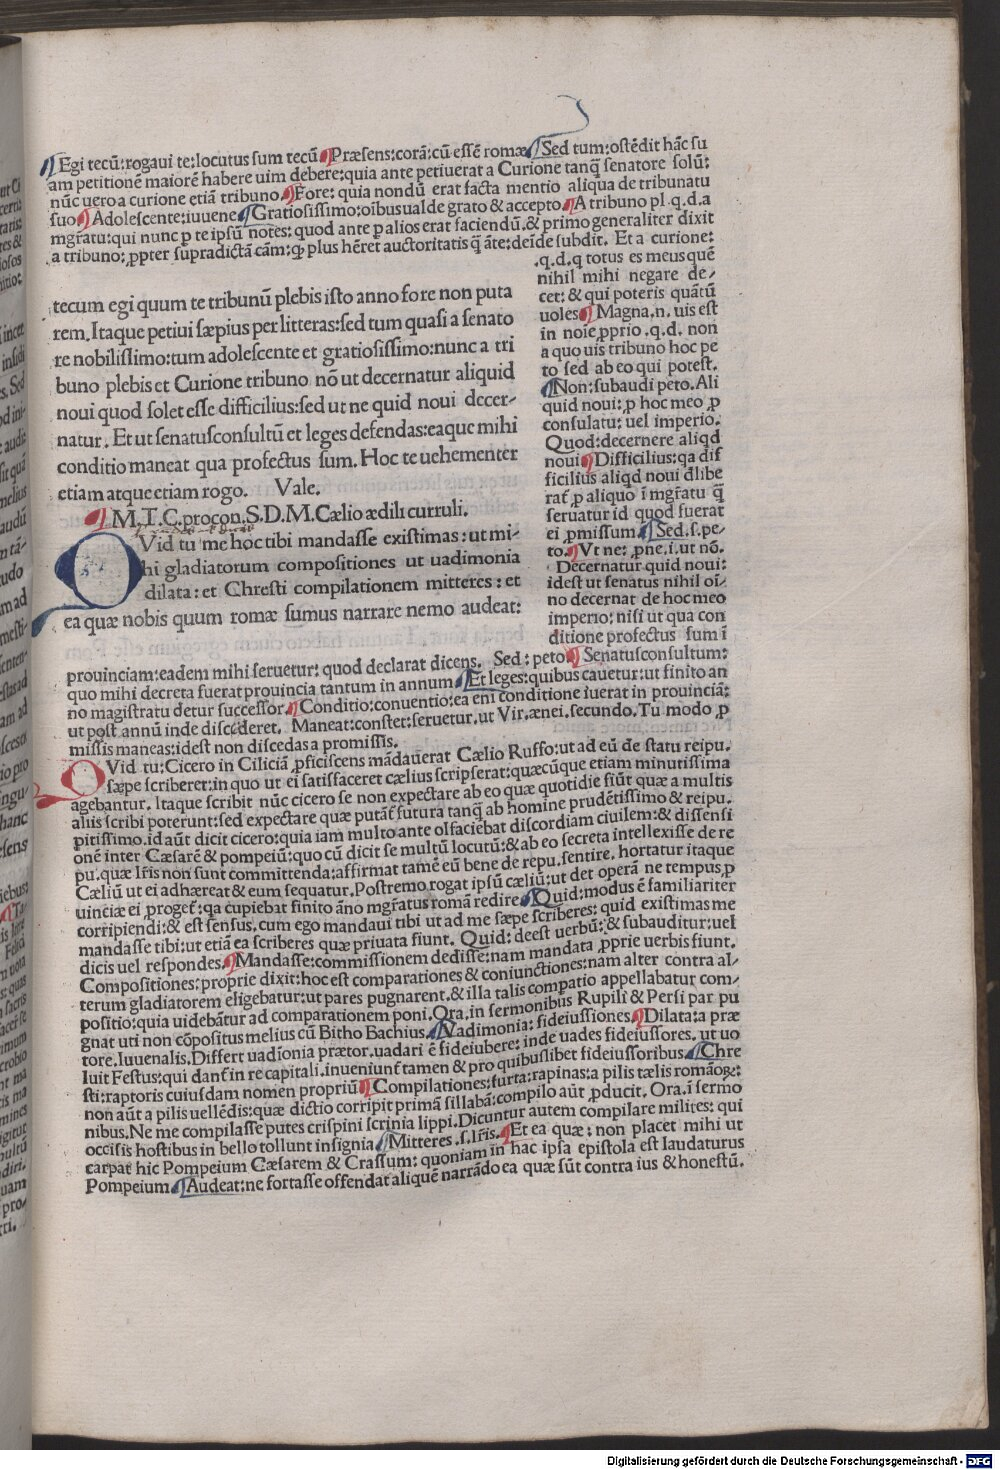 ¶Egi tecū:rogaui te:locutus sum tecū ¶Præsens:corā:cū essē romæ ¶Sed tum:ostēdit hāc su
am petitionē maiorē habere uim debere:quia ante petiuerat a Curione tanq̄ senatore solū:
nūc uero a curione etiā tribuno. ¶Fore: quia nondū erat facta mentio aliqua de tribunatu
suo ¶Adolescente:iuuene ¶Gratiosissimo:oībus ualde grato & accepto. ¶A tribuno pl.q.d.a
mgr̄atu:qui nunc p te ipsū notes: quod ante p alios erat faciendū.& primo generaliter dixit
a tribuno: ꝓpter supradictā cām: qꝫ plus hēret auctoritatis q̄ āte: deīde subdit. Et a curione:
.q.d.q totus es meus quē
nihil mihi negare de⸗
cet: & qui poteris quātū
uoles ¶Magna.n. uis est
in noīe ꝓprio .q.d. non
a quo uis tribuno hoc pe
to sed ab eo qui potest.
¶Non: subaudi peto. Ali
quid noui: ꝓ hoc meo ꝓ
consulatu: uel imperio.
Quod: decernere aliqd
noui ¶Difficilius: qa dif
ficilius aliqd noui dlibe
rat̄ p aliquo ī mgr̄atu q̄
seruatur id quod fuerat
ei ꝓmissum ¶Sed .s. pe⸗
to. ¶Vt ne: ꝓ ne .i. ut nō.
Decernatur quid noui:
idest ut senatus nihil oī⸗
no decernat de hoc meo
imperio: nisi ut qua con
ditione profectus sum ī
tecum egi quum te tribunū plebis isto anno fore non puta
rem. Itaque petiui sæpius per litteras: sed tum quasi a senato
re nobilissimo: tum adolescente et gratiosissimo: nunc a tri
buno plebis et Curione tribuno nō ut decernatur aliquid
noui quod solet esse difficilius: sed ut ne quid noui decer⸗
natur. Et ut senatusconsultū et leges defendas: eaque mihi
conditio maneat qua profectus sum. Hoc te uehementer
etiam atque etiam rogo. Vale.
¶M.T.C.procon.S.D.M.Cælio ædili curruli.
QVid tu me hoc tibi mandasse existimas: ut mi⸗
hi gladiatorum compositiones ut uadimonia
dilata: et Chresti compilationem mitteres: et
ea quæ nobis quum romæ sumus narrare nemo audeat:
prouinciam: eadem mihi seruetur: quod declarat dicens. Sed: peto ¶Senatusconsultum:
quo mihi decreta fuerat prouincia tantum in annum ¶Et leges: quibus cauetur: ut finito an
no magistratu detur successor. ¶Conditio: conuentio: ea enī conditione iuerat in prouinciā:
ut post annū inde discederet. Maneat: constet: seruetur. ut Vir. ænei. secundo. Tu modo ꝓ
missis maneas: idest non discedas a promissis.
QVid tu: Cicero in Ciliciā ꝓficiscens mādauerat Cælio Ruffo: ut ad eū de statu reipu.
sæpe scriberet: in quo ut ei satisfaceret cælius scripserat: quæcūque etiam minutissima
agebantur. Itaque scribit nūc cicero se non expectare ab eo quæ quotidie fiūt quæ a multis
aliis scribi poterunt: sed expectare quæ putāt futura tanq̄ ab homine prudētissimo & reipu.
pitissimo. id aūt dicit cicero: quia iam multo ante olfaciebat discordiam ciuilem: & dissensi
onē inter Cæsarē & pompeiū: quo cū dicit se multū locutū: & ab eo secreta intellexisse de re
pu. quæ lr̄is non sunt committenda: affirmat tamē eū bene de repu. sentire. hortatur itaque
Cæliū ut ei adhæreat & eum sequatur. Postremo rogat ipsū cæliū: ut det operā ne tempus ꝓ
uinciæ ei proget̄: qa cupiebat finito āno mgr̄atus romā redire ¶Quid: modus ē familiariter
corripiendi: & est sensus. cum ego mandaui tibi ut ad me sæpe scriberes: quid existimas me
mandasse tibi: ut etiā ea scriberes quæ priuata fiunt. Quid: deest uerbū: & subauditur: uel
dicis uel respondes. ¶Mandasse: commissionem dedisse: nam mandata ꝓprie uerbis fiunt.
Compositiones: proprie dixit: hoc est comparationes & coniunctiones: nam alter contra al⸗
terum gladiatorem eligebatur: ut pares pugnarent. & illa talis compatio appellabatur com⸗
positio: quia uidebātur ad comparationem poni. Ora. in sermonibus Rupili & Persi par pu
gnat uti non cōpositus melius cū Bitho Bachius. ¶Vadimonia: fideiussiones. ¶Dilata: a præ
tore. Iuuenalis. Differt uadīonia prætor. uadari ē fideiubere: inde uades fideiussores. ut uo
luit Festus: qui dant̄ in re capitali. inueniunt̄ tamen & pro quibuslibet fideiussoribus. ¶Chre
sti: raptoris cuiusdam nomen propriū ¶Compilationes: furta: rapinas: a pilis tælis romāoꝝ:
non aūt a pilis uellēdis: quæ dictio corripit primā sillabā: compilo aūt ꝓducit. Ora. ī sermo
nibus. Ne me compilasse putes crispini scrinia lippi. Dicuntur autem compilare milites: qui
occisis hostibus in bello tollunt insignia ¶Mitteres .s. lr̄is. ¶Et ea quæ: non placet mihi ut
carpat hic Pompeium Cæsarem & Crassum: quoniam in hac ipsa epistola est laudaturus
Pompeium ¶Audeat: ne fortasse offendat aliquē narrādo ea quæ sūt contra ius & honestū.
Digitalisierung gefördert durch die Deutsche Forschungsgemeinschaft - DFG